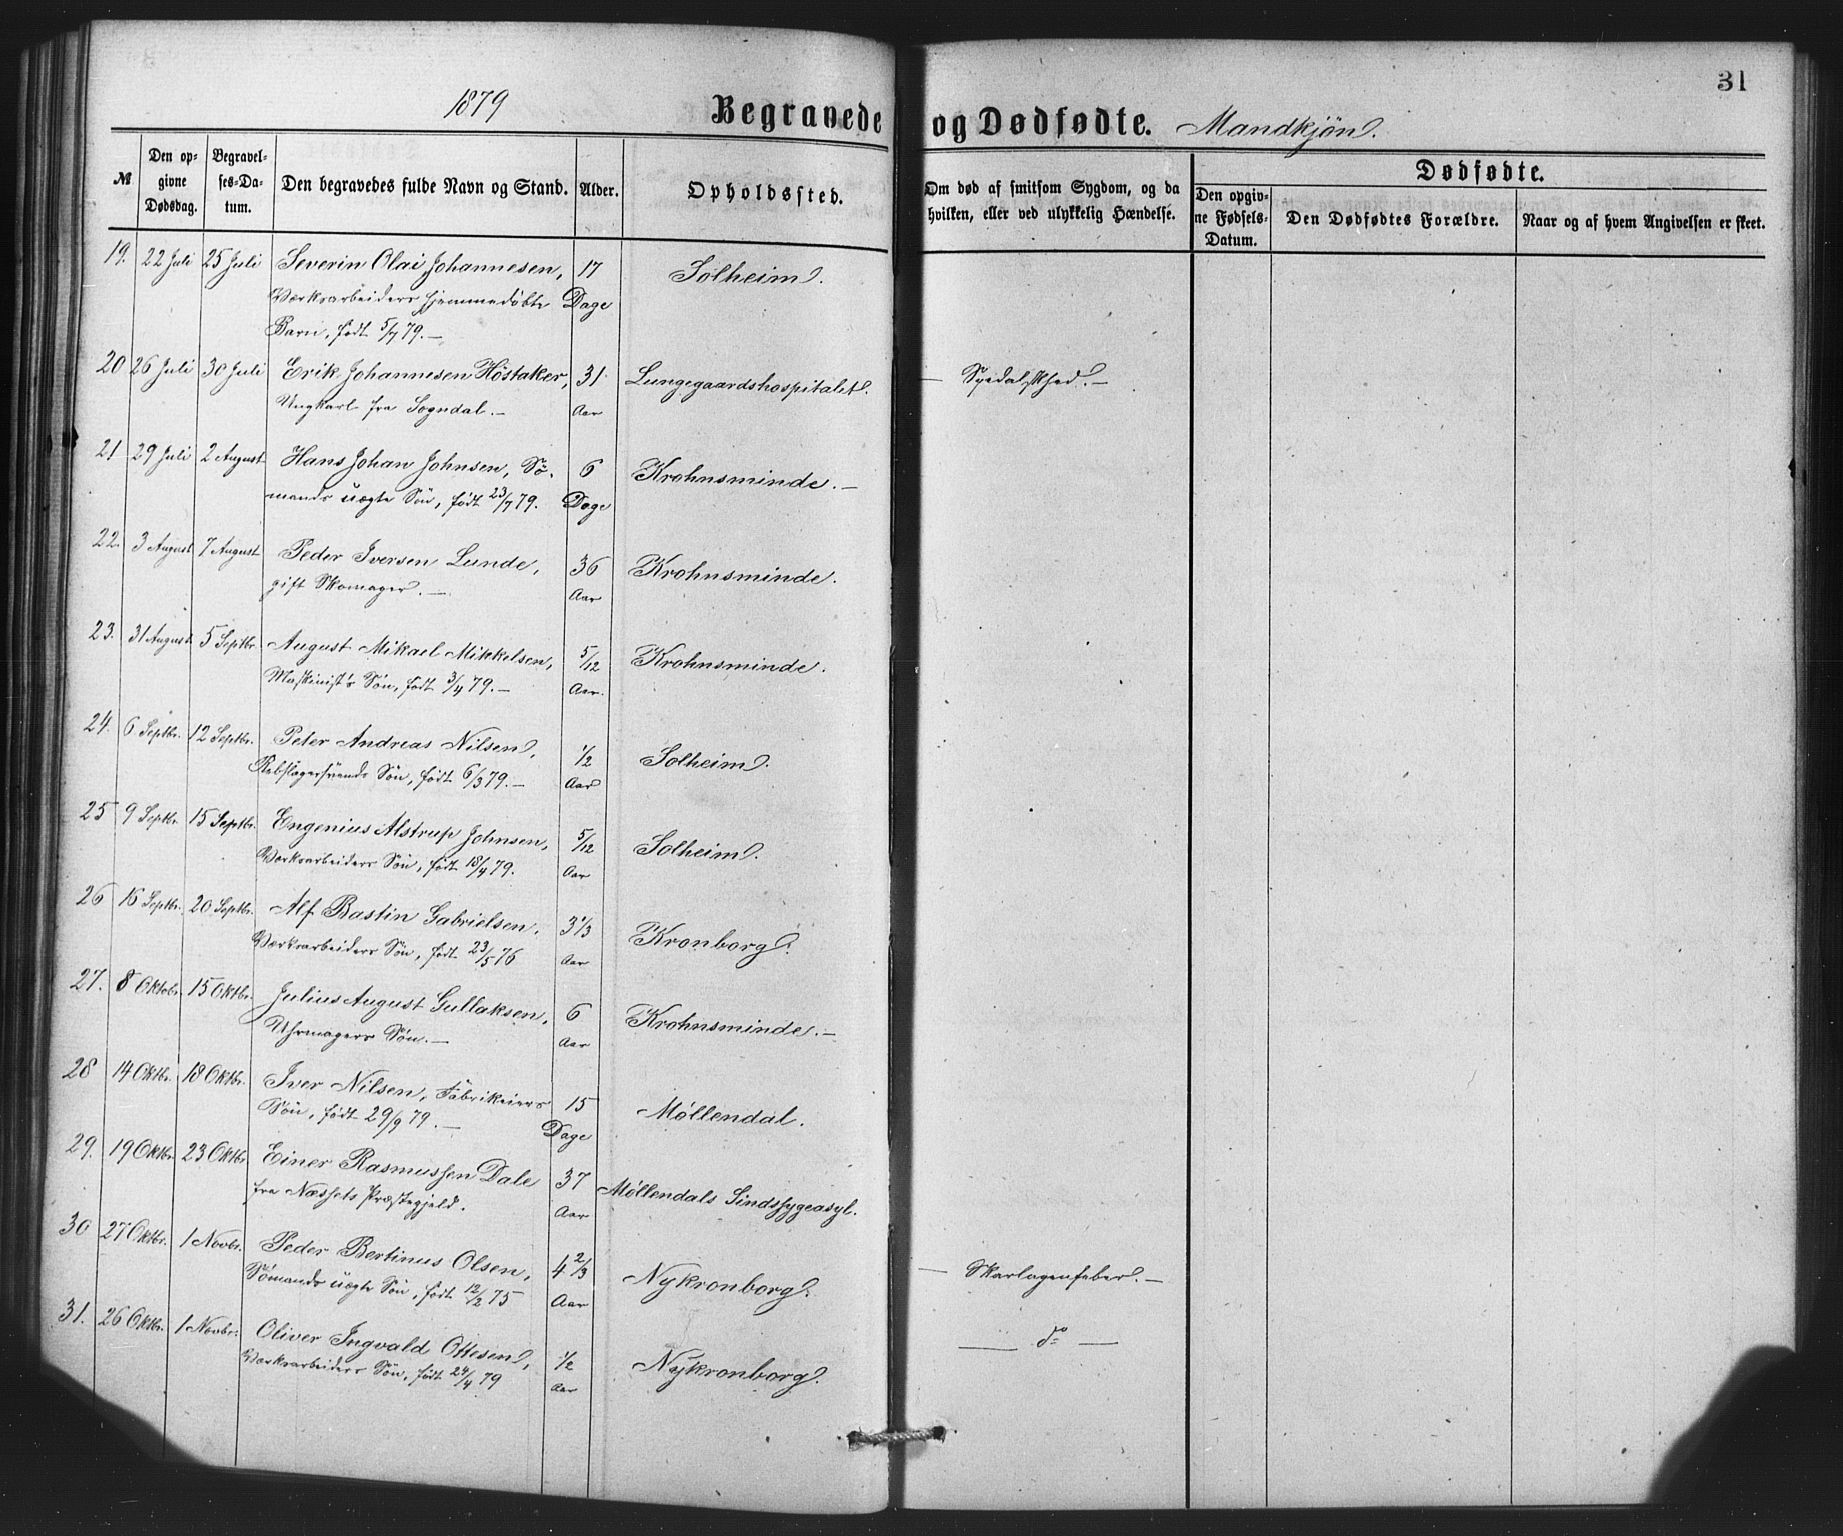 31
1879 Begravede og Dødfødte. Mandkjøn.
№ | Den opgivne Dødsdag. | Begravelses-Datum. | Den begravedes fulde Navn og Stand. | Alder. | Opholdssted. | Om død af smitsom Sygdom, og da hvilken, eller ved ulykkelig Hændelse. | Dødfødte. | Den opgivne Fødsels-Datum. | Den Dødfødtes Forældre. | Naar og af hvem Angivelsen er skeet.
19. 22 Juli 25 Juli Severin Olai Johannesen, 17 Solheim.
Værksarbeiders hjemmedøbte Dage
Barn, født 5/7 79.—
20 26 Juli 30 Juli Erik Johannesen Höstaker, 31 Lungegaardshospitalet. — Spedalskhed.—
Ungkarl fra Sogndal.— Aar
21 29 Juli 2 August Hans Johan Johnsen, Sö- 6 Krohnsminde.—
mands uægte Sön, født 23/7 79. Dage
22. 3 August 7 August Peder Iversen Lunde, 36 Krohnsminde.
gift Skomager.— Aar
23. 31 August 5 Septbr. August Mikael Mikkelsen, 5/12 Krohnsminde.
Maskinist's Søn, født 3/4 79.— Aar.
24. 6 Septbr. 12 Septbr. Peter Andreas Nilsen, 1/2 Solheim.
Rebslagersvends Søn, født 6/3 79.— Aar
25 9 Septbr. 15 Septbr. Engenius Alstrup Johnsen, 5/12 Solheim.
Værksarbeiders Søn, født 18/4 79. Aar
26 16 Septbr. 20 Septbr. Alf Bastin Gabrielsen, 3 1/3 Kronborg.
Værksarbeiders Søn, født 23/5 76 Aar
27. 8 Oktobr. 15 Oktbr. Julius August Gullaksen, 6 Krohnsminde.—
Uhrmagers Søn.— Aar
28 14 Oktbr. 18 Oktbr. Iver Nilsen, Fabrikeiers 15 Møllendal.
Søn, født 29/9 79.— Dage
29. 19 Oktbr. 23 Oktbr. Einer Rasmussen Dale 37 Møllendals Sindssygeasyl.
fra Næssets Præstegjeld. Aar
30 27 Oktbr. 1 Novbr. Peder Bertinus Olsen, 4 2/3 Nykronborg. — Skarlagenfeber.—
Sømands uægte Søn, født 12/2 75 Aar
31. 26 Oktbr. 1 Novbr. Oliver Ingvald Ottesen, 1/2 Nykronborg. — do —
Værksarbeiders Søn, født 24/4 79 Aar